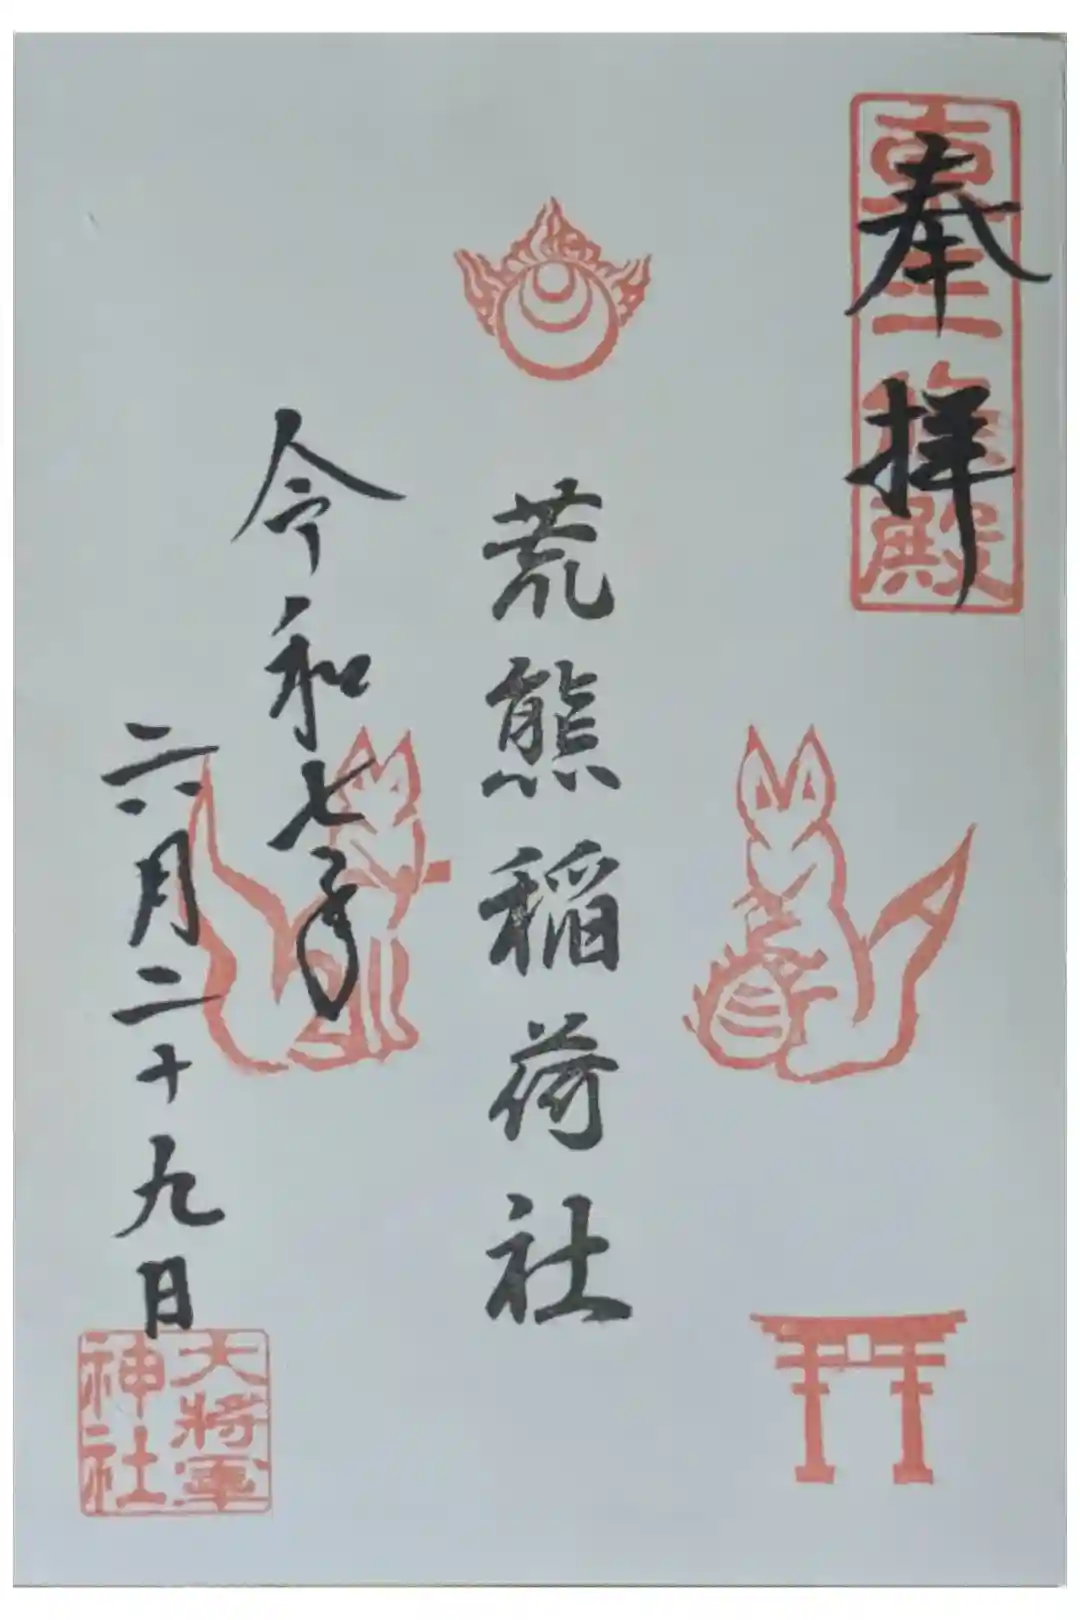 奉拝
東三條殿
荒熊稲荷社
令和七年
六月二十九日
大将軍
神社